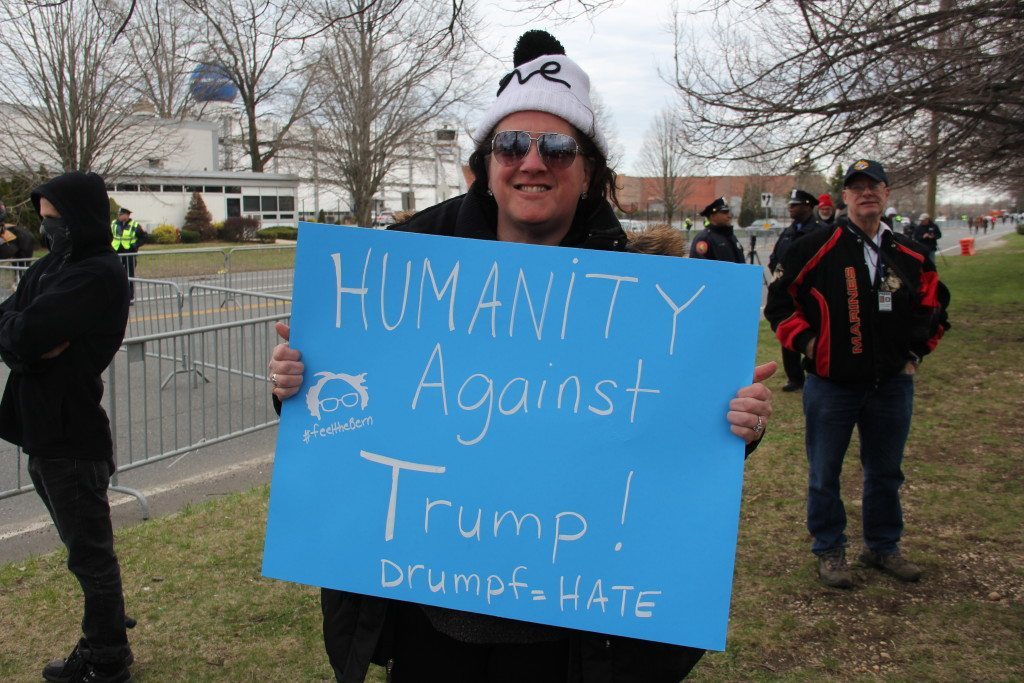 HUMANITY
Against
#feeltheBern
Trump!
Drumpf=HATE
MARINES